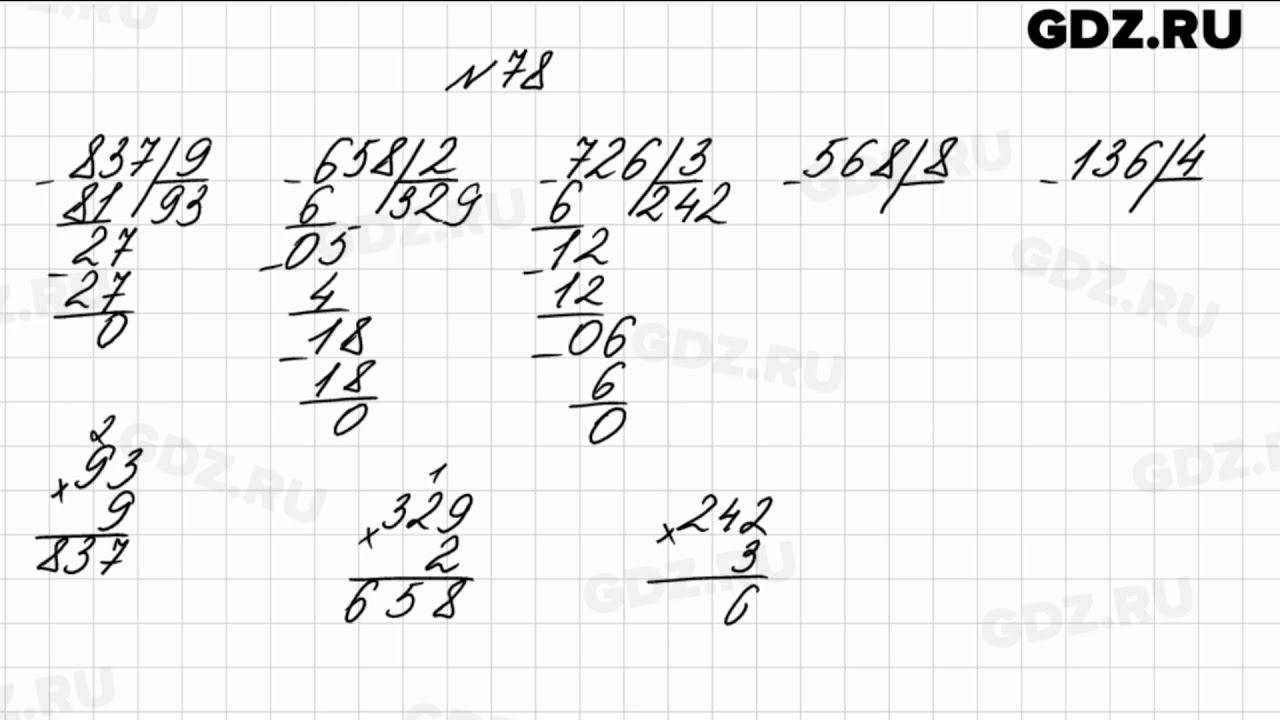 GDZ.RU
№ 78
837 | 9   658 | 2   726 | 3   568 | 8   136 | 4
81 | 93   6 | 329   6 | 242
27   05   12
27   4   12
0   18   06
18   6
0   0
2
× 93   1
9   × 329   × 242
837   2   3
658   6